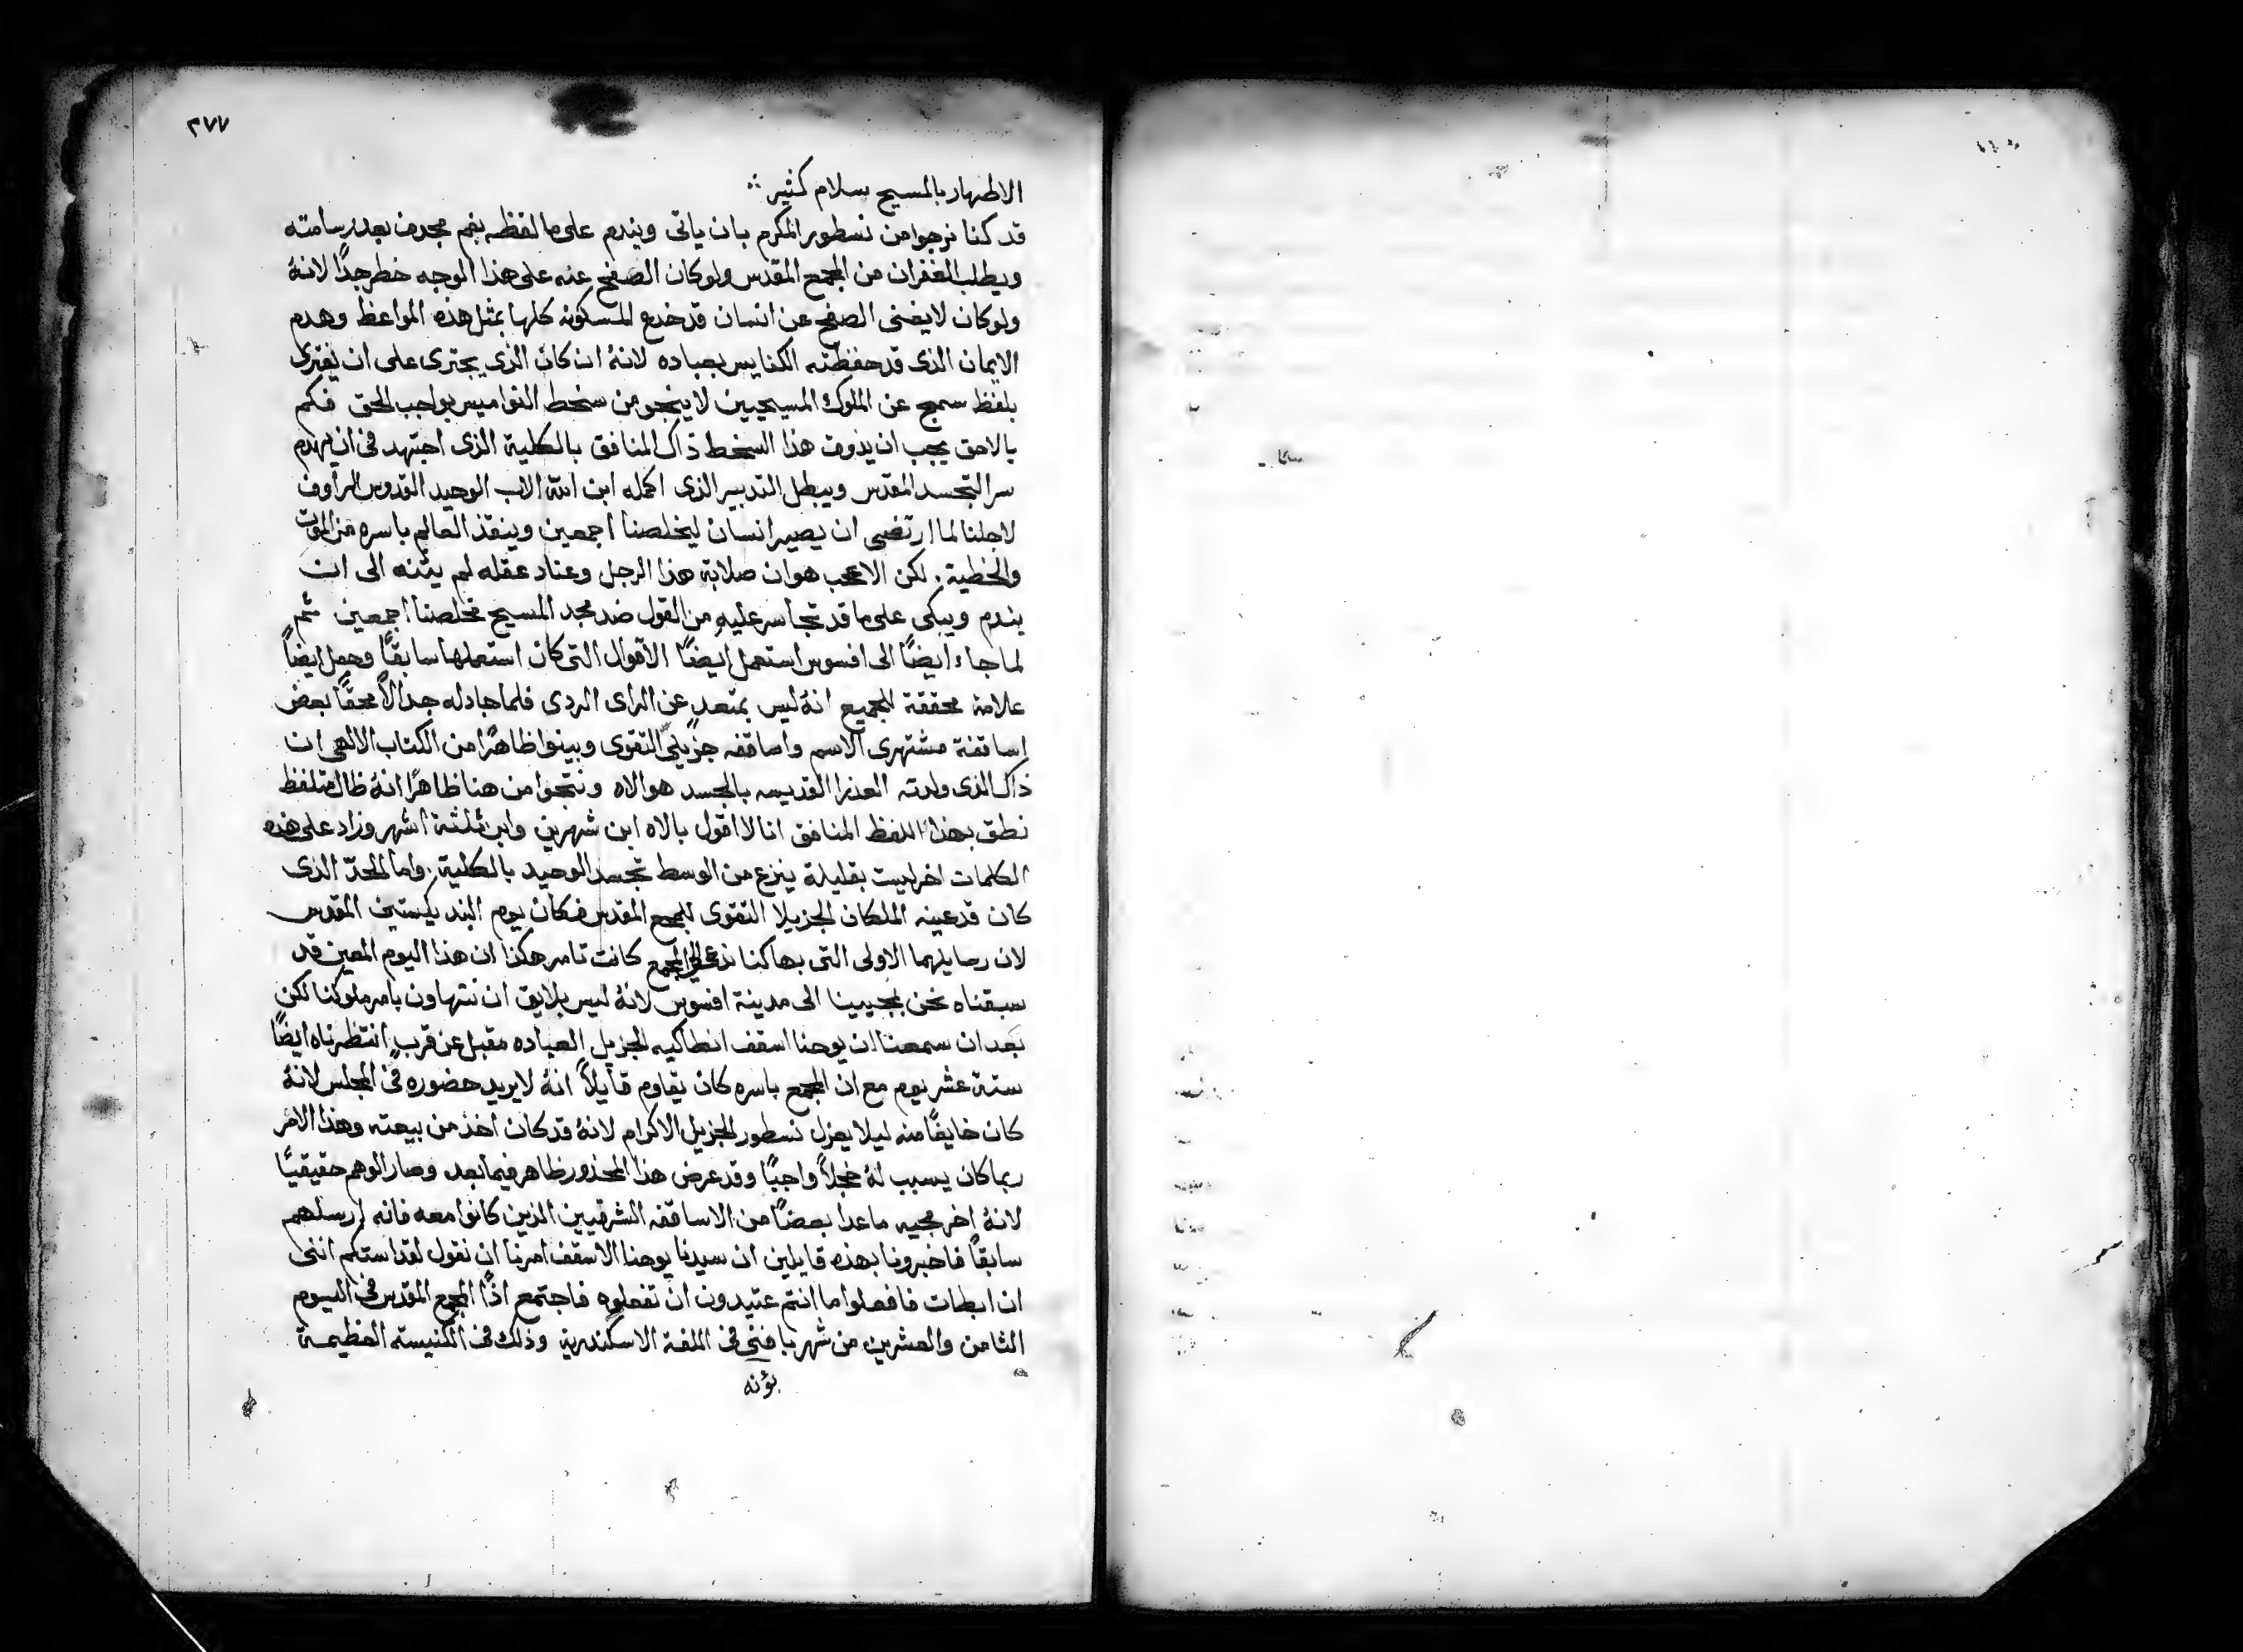 ٢٧٧
الاطهار بالمسيح سلام كثير
قد كنا نرجوا من نسطور المكرم بان ياتى ويندم على ما لفظه بفم مجدف بعد رسامته
ويطلب الغفران من المجمع المقدس ولو كان الصفح عنه على هذا الوجه خطر جدًا لانهُ
ولو كان لا يغنى الصفح عن انسان قد خدع المسكونه كلها بمثل هذه المواعظ وهدم
الايمان الذى قد حفظته الكنايس بعباده لانهُ ان كان الذى يجترى على ان يفترى
بلفظ سمج عن الملوك المسيحيين لا ينجو من سخط النواميس بواجب الحق فكم
بالاحق يجب ان يذوق هذا السخط ذاك المنافق بالكلية الذى اجتهد فى ان يهدم
سر التجسد المقدس ويبطل التدبير الذى اكمله ابن الله الاب الوحيد القدوس الرأوف
لاجلنا لما ارتضى ان يصير انسان ليخلصنا اجمعين وينقذ العالم باسره من الموت
والخطية. لكن الاعجب هو ان صلابة هذا الرجل وعناد عقله لم يثنه الى ان
يندم ويبكى على ما قد تجاسر عليهِ من القول ضد مجد المسيح مخلصنا اجمعين ثم
لما جاء ايضًا الى افسوس استعمل ايضًا الاقوال التى كان استعملها سابقًا وجعل ايضاً
علامة محققة للجميع انهُ ليس بمتعدٍ عن الراى الردى فلما جادله جدالاً محقًا بعض
اساقفة مشتهرى الاسم واساقفه جزيلى التقوى وبينوا ظاهرًا من الكتاب الالهى ان
ذاك الذى ولدته العذرا القديسه بالجسد هو الاه ونتجوا من هنا ظاهرًا انهُ ظال متلفظ
نطق بهذا اللفظ المنافق انا لا اقول بالاه ابن شهرين وابن ثلثة اشهر وزاد على هذه
الكلمات اخر ليست بقليلة ينزع من الوسط تجسد الوحيد بالكلية. واما الحدّ الذى
كان قد عينه الملكان الجزيلا التقوى للمجمع المقدس فكان يوم البنديكستين المقدس
لان رسايلهما الاولى التى بها كنا ندعى الى المجمع كانت تامر هكذا ان هذا اليوم المعين قد
سبقناه نحن بمجيينا الى مدينة افسوس لانهُ ليس بلايق ان نتهاون بامر ملوكنا لكن
بعد ان سمعنا ان يوحنا اسقف انطاكيه الجزيل العباده مقبل عن قرب انتظرناه ايضًا
ستة عشر يوم مع ان المجمع باسره كان يقاوم قايلاً انهُ لا يريد حضوره فى المجلس لانهُ
كان خايفًا منه ليلا يعزل نسطور الجزيل الاكرام لانهُ قد كان اخذ من بيعته وهذا الامر
ربما كان يسبب لهُ خجلاً واجبًا وقد عرض هذا المحذور ظاهر فيما بعد وصار الوهم حقيقيًا
لانهُ اخر مجيه ما عدا بعضًا من الاساقفه الشرقيين الذين كانوا معه فانه ارسلهم
سابقًا فاخبرونا بهذه قايلين ان سيدنا يوحنا الاسقف امرنا ان نقول لقداستكم اننى
ان ابطات فافعلوا ما انتم عتيدون ان تفعلوه فاجتمع اذًا المجمع المقدس فى اليوم
الثامن والعشرين من شهر بافنى فى اللغة الاسكندرية وذلك فى الكنيسة العظيمة
بؤنه